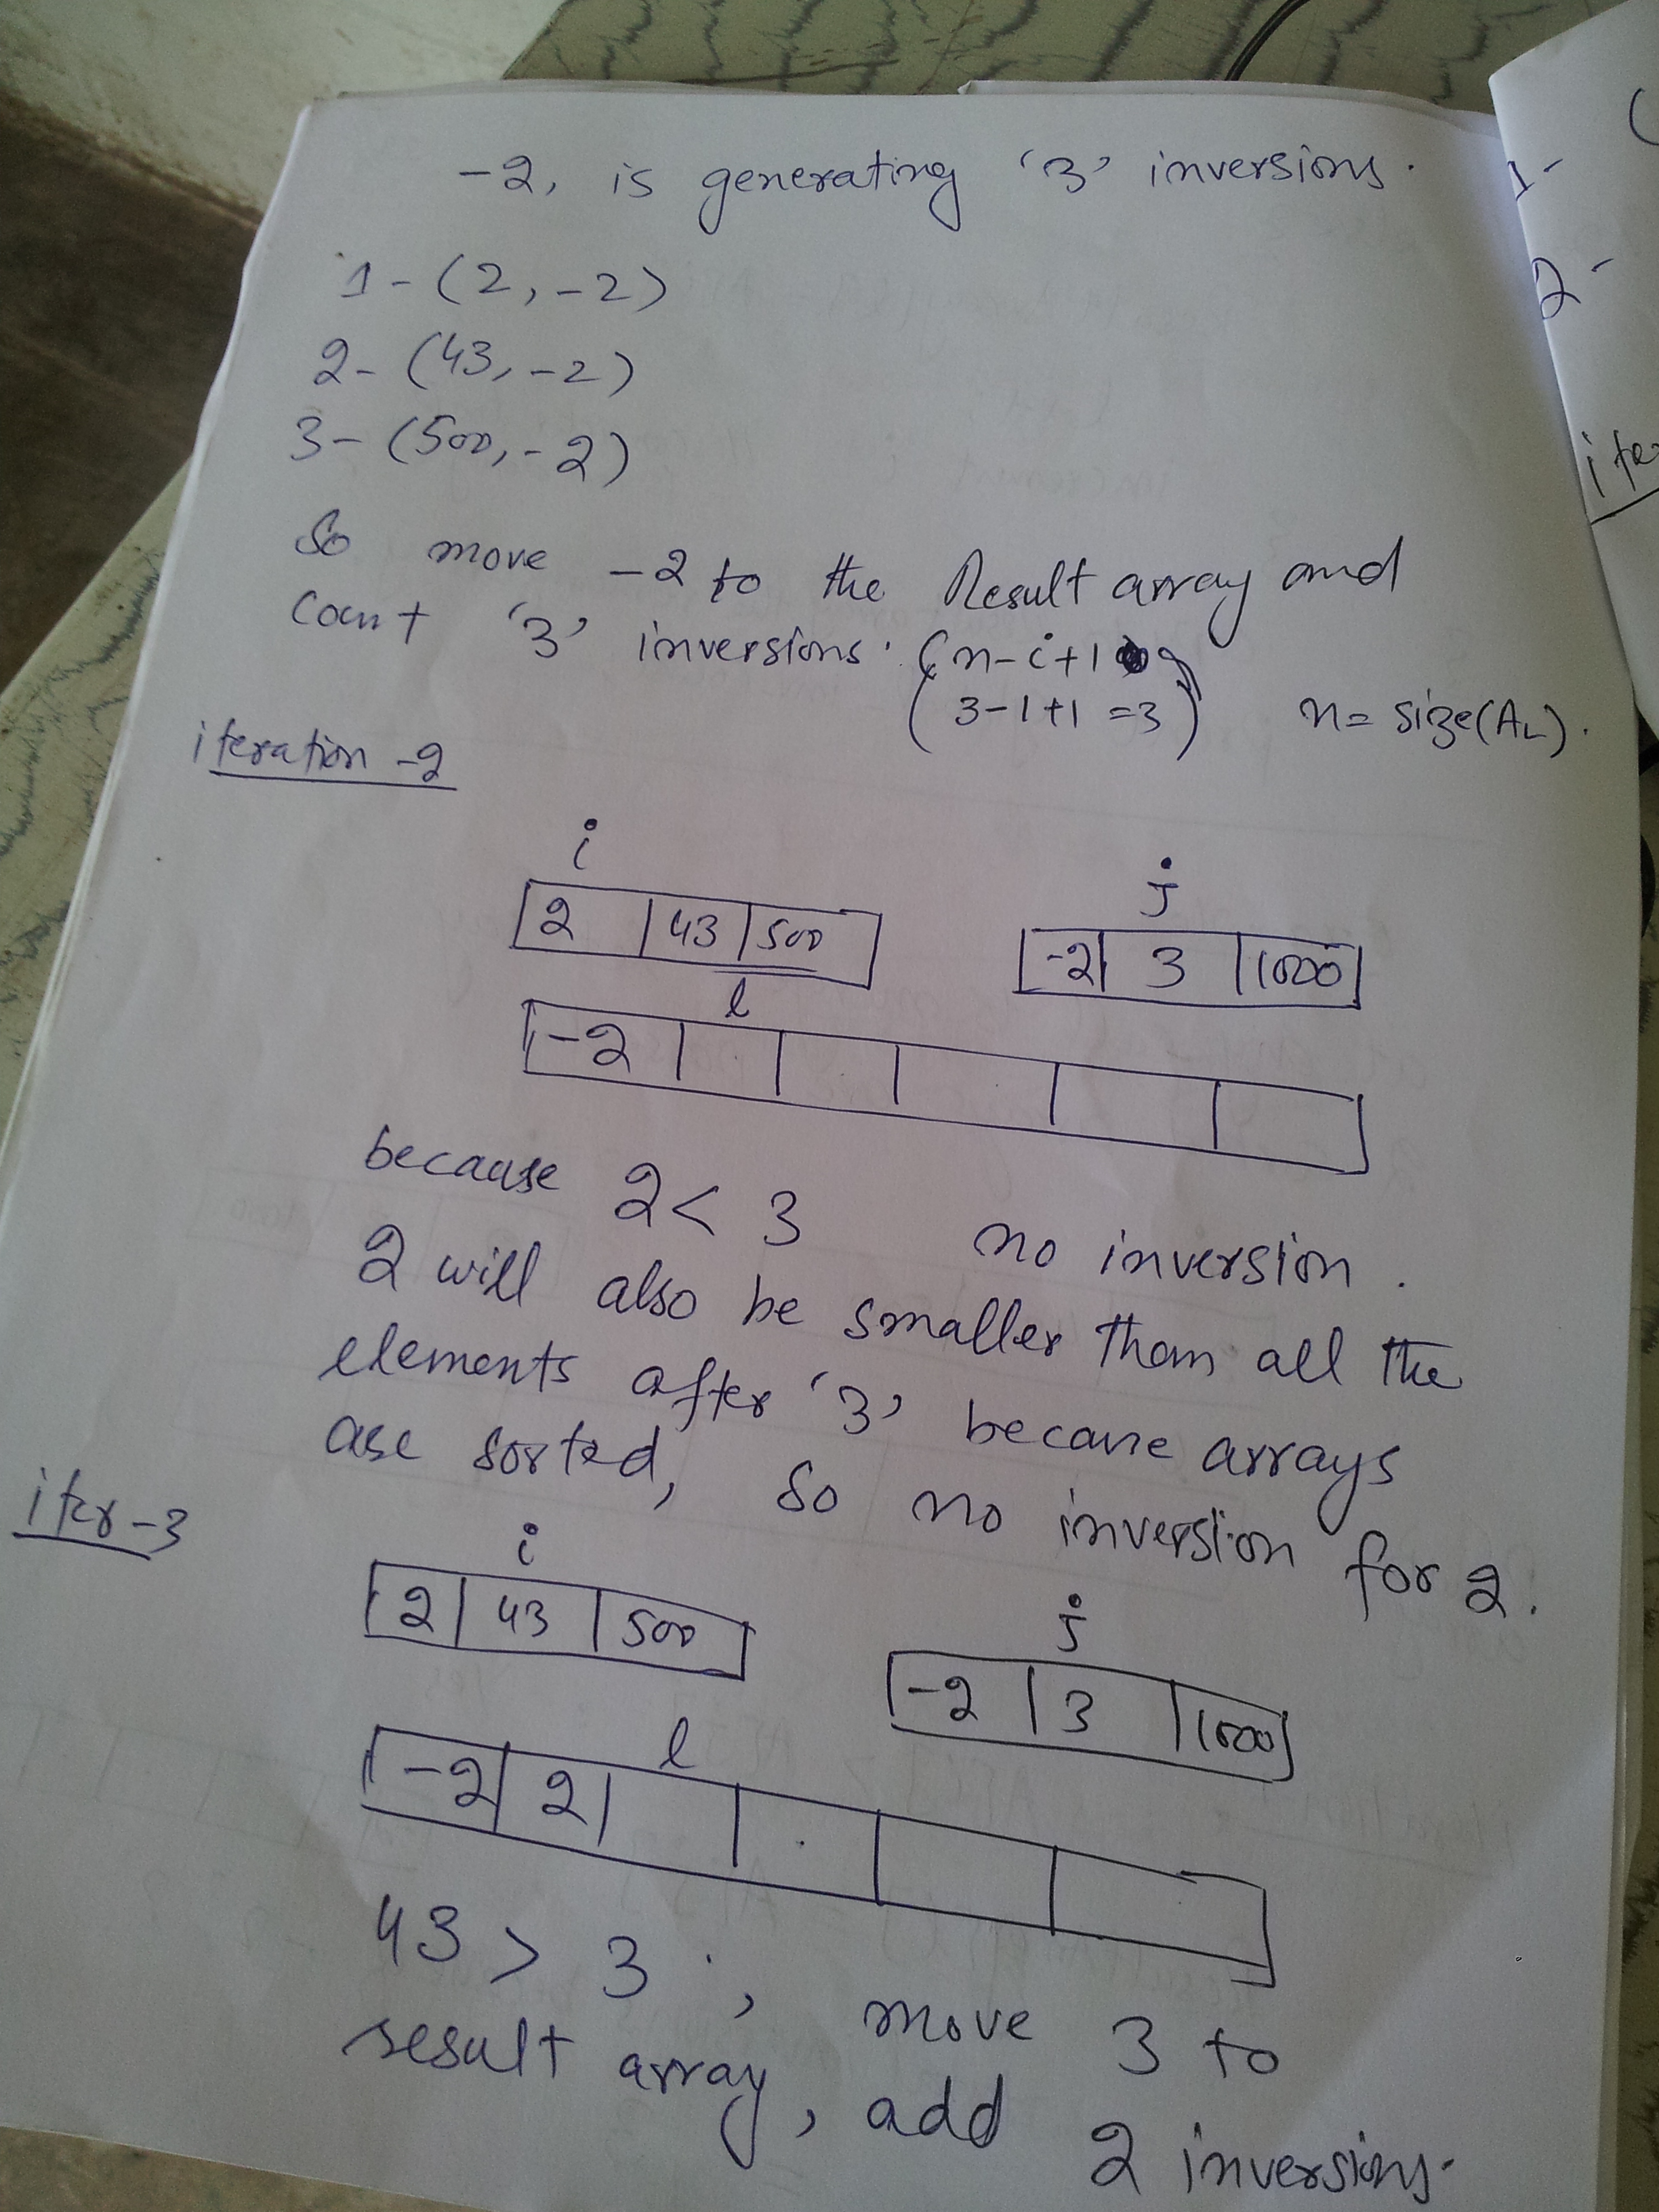 -2, is generating '3' inversion.
1 - (2, -2)
2 - (43, -2)
3 - (500, -2)
So move -2 to the Result array and
count '3' inversions. (n-i+1)
(3-1+1 = 3) n = size(AL).
iteration -2
i j
2 43 500 -2 3 1000
l
-2
because 2 < 3 no inversion.
2 will also be smaller than all the
elements after '3', because arrays
are sorted, so no inversion for 2.
iter -3
i j
2 43 500 -2 3 1000
l
-2 2
43 > 3, move 3 to
result array, add 2 inversion.
2.
ite